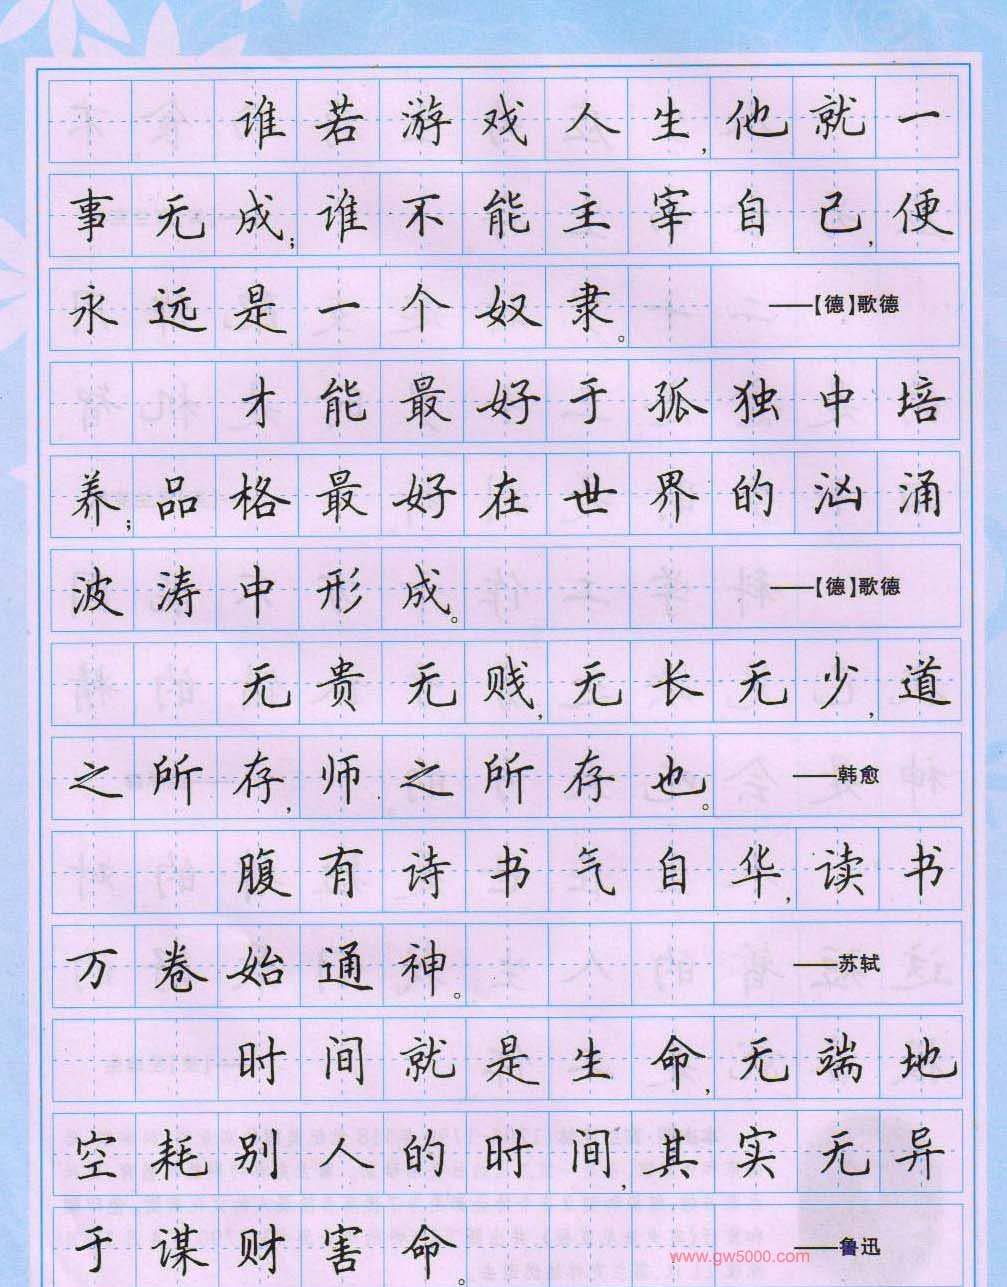 谁若游戏人生,他就一
事无成;谁不能主宰自己,便
永远是一个奴隶。 ——【德】歌德
才能最好于孤独中培
养;品格最好在世界的汹涌
波涛中形成。 ——【德】歌德
无贵无贱,无长无少,道
之所存,师之所存也。 ——韩愈
腹有诗书气自华,读书
万卷始通神。 ——苏轼
时间就是生命,无端地
空耗别人的时间,其实无异
于谋财害命。 ——鲁迅
www.gw5000.com